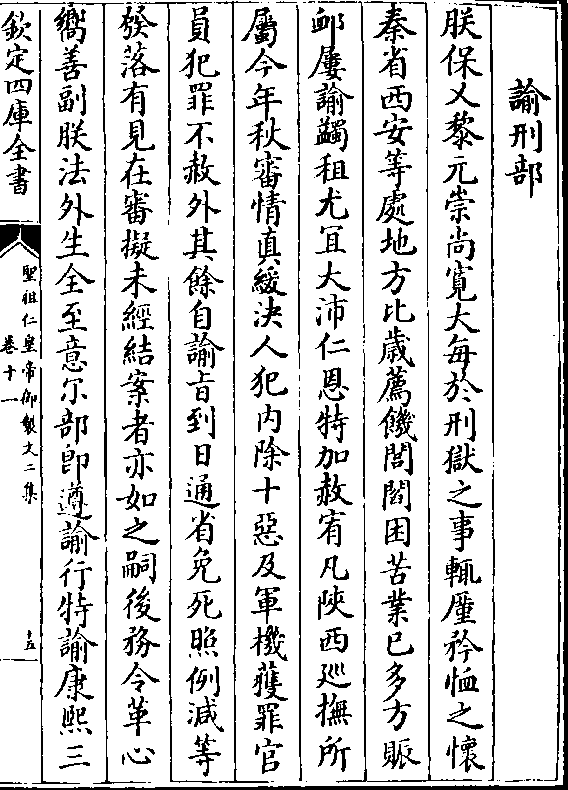 諭刑部
朕保乂黎元崇尚寛大每於刑獄之事輒廑矜恤之懷
秦省西安等處地方比歳薦饑閭閻困苦業已多方賑
䘏屢諭蠲租尤宜大沛仁恩特加赦宥凡陝西廵撫所
屬今年秋審情真緩決人犯内除十惡及軍機獲罪官
員犯罪不赦外其餘自諭㫖到日通省免死照例減等
發落有見在審擬未經結案者亦如之嗣後務令革心
嚮善副朕法外生全至意尔部即遵諭行特諭康熙三
欽定四庫全書
聖祖仁皇帝御製文二集
卷十一
十五